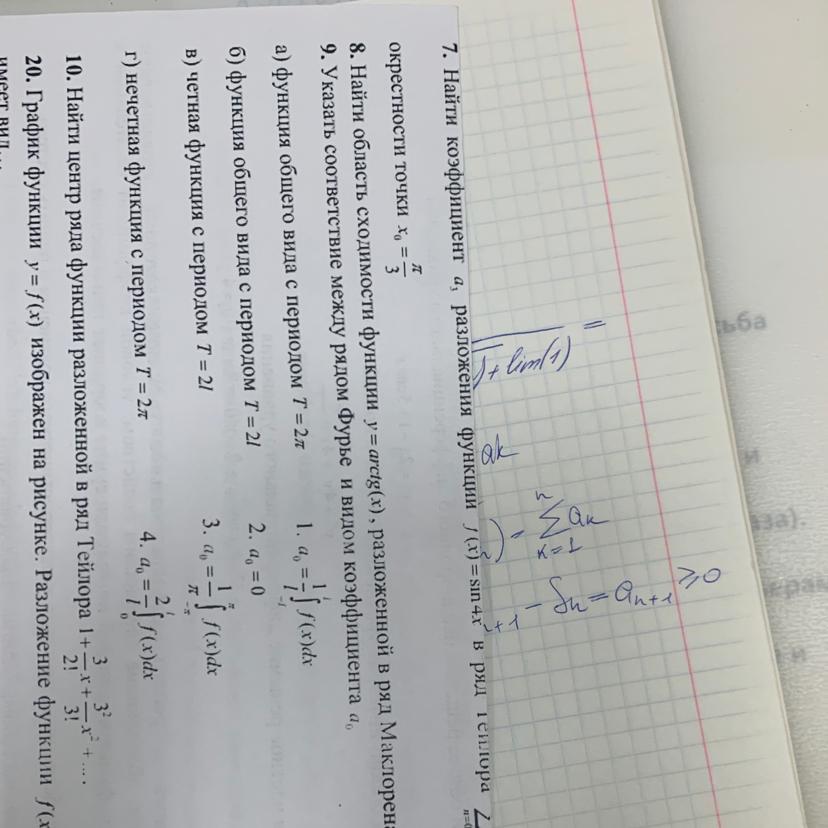 7. Найти коэффициент a₃ разложения функции f(x) = sin 4x в ряд Тейлора Σ n=0
окрестности точки x₀ = π/3
8. Найти область сходимости функции y = arctg(x), разложенной в ряд Маклорена
9. Указать соответствие между рядом Фурье и видом коэффициента a₀
а) функция общего вида с периодом T = 2π
1. a₀ = 1/l ∫₋ₗˡ f(x)dx
б) функция общего вида с периодом T = 2l
2. a₀ = 0
в) четная функция с периодом T = 2l
3. a₀ = 1/π ∫₋π^π f(x)dx
г) нечетная функция с периодом T = 2π
4. a₀ = 2/l ∫₀ˡ f(x)dx
10. Найти центр ряда функции разложенной в ряд Тейлора 1 + 3/2! x + 3²/3! x² + ....
20. График функции y = f(x) изображен на рисунке. Разложение функции f(x)
имеет вид...
+ lim(1) =
ak
) = Σ k=1 n aₖ
n+1 − Sn = an+1 ≥ 0
ьба
и
аза).
и